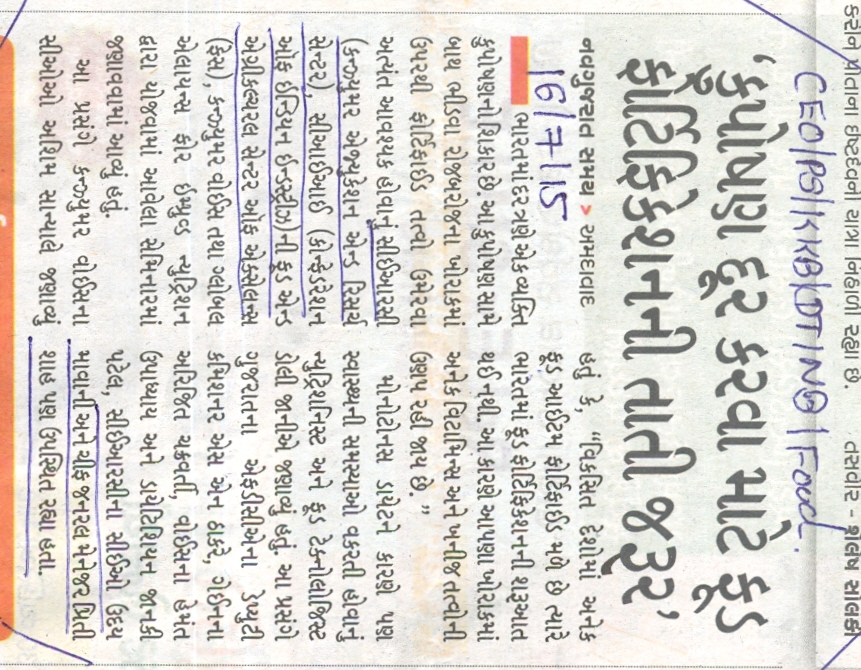 કરીને પોતાના ઇષ્ટદેવની યાત્રા નિહાળી રહ્યા છે. તસવીર - શૈલેષ સોલંકી
CEO/PS/KKB/DT/NB/Food.
‘કુપોષણ દૂર કરવા માટે ફૂડ
ફોર્ટિફિકેશનની તાતી જરૂર’
નવગુજરાત સમય > અમદાવાદ
16/7/15
ભારતમાં દર ત્રણે એક વ્યક્તિ
કુપોષણની શિકાર છે. આ કુપોષણ સામે
બાથ ભીડવા રોજબરોજના ખોરાકમાં
ઉપરથી ફોર્ટિફાઈડ તત્વો ઉમેરવા
અત્યંત આવશ્યક હોવાનું સીઈઆરસી
(કન્ઝ્યુમર એજ્યુકેશન એન્ડ રિસર્ચ
સેન્ટર), સીઆઈઆઈ (કોન્ફેડરેશન
ઓફ ઈન્ડિયન ઈન્ડસ્ટ્રીઝ)ની ફૂડ એન્ડ
એગ્રીકલ્ચરલ સેન્ટર ઓફ એક્સેલન્સ
(ફેસ), કન્ઝ્યુમર વોઈસ તથા ગ્લોબલ
એલાયન્સ ફોર ઈમ્પ્રુવ્ડ ન્યુટ્રિશન
દ્વારા યોજવામાં આવેલા સેમિનારમાં
જણાવવામાં આવ્યું હતું.
આ પ્રસંગે કન્ઝ્યુમર વોઈસના
સીઓઓ અસિમ સાન્યાલે જણાવ્યું
હતું કે, “વિકસિત દેશોમાં અનેક
ફૂડ આઈટમ ફોર્ટિફાઈડ મળે છે ત્યારે
ભારતમાં ફૂડ ફોર્ટિફિકેશનની શરૂઆત
થઈ નથી. આ કારણે આપણા ખોરાકમાં
અનેક વિટામિન્સ અને ખનીજ તત્વોની
ઉણપ રહી જાય છે.”
મોનોટોનસ ડાયેટને કારણે પણ
સ્વાસ્થ્યની સમસ્યાઓ વકરતી હોવાનું
ન્યુટ્રિશનિસ્ટ અને ફૂડ ટેક્નોલોજિસ્ટ
ડોલી જાનીએ જણાવ્યું હતું. આ પ્રસંગે
ગુજરાતના એફડીસીએના ડેપ્યુટી
કમિશનર એસ એન ઠાકરે, ગેઈનના
અરિજિત ચક્રવર્તી, વોઈસના હેમંત
ઉપાધ્યાય અને ડાયેટિશિયન જાનકી
પટેલ, સીઈઆરસીના સીઈઓ ઉદય
માવાણી અને ચીફ જનરલ મેનેજર પ્રિતી
શાહ પણ ઉપસ્થિત રહ્યા હતા.